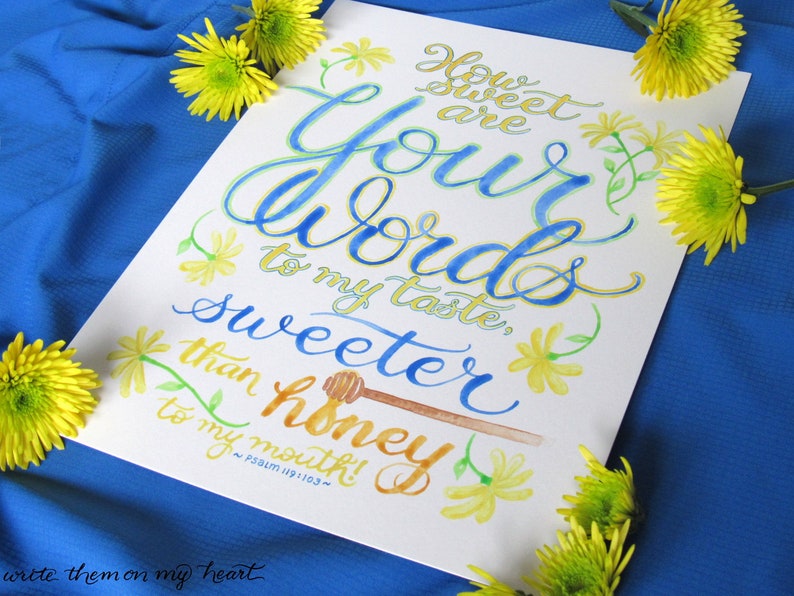 How
sweet
are
Your
Words
to my taste,
sweeter
than honey
to my mouth!
~ PSALM 119:103 ~
write them on my heart